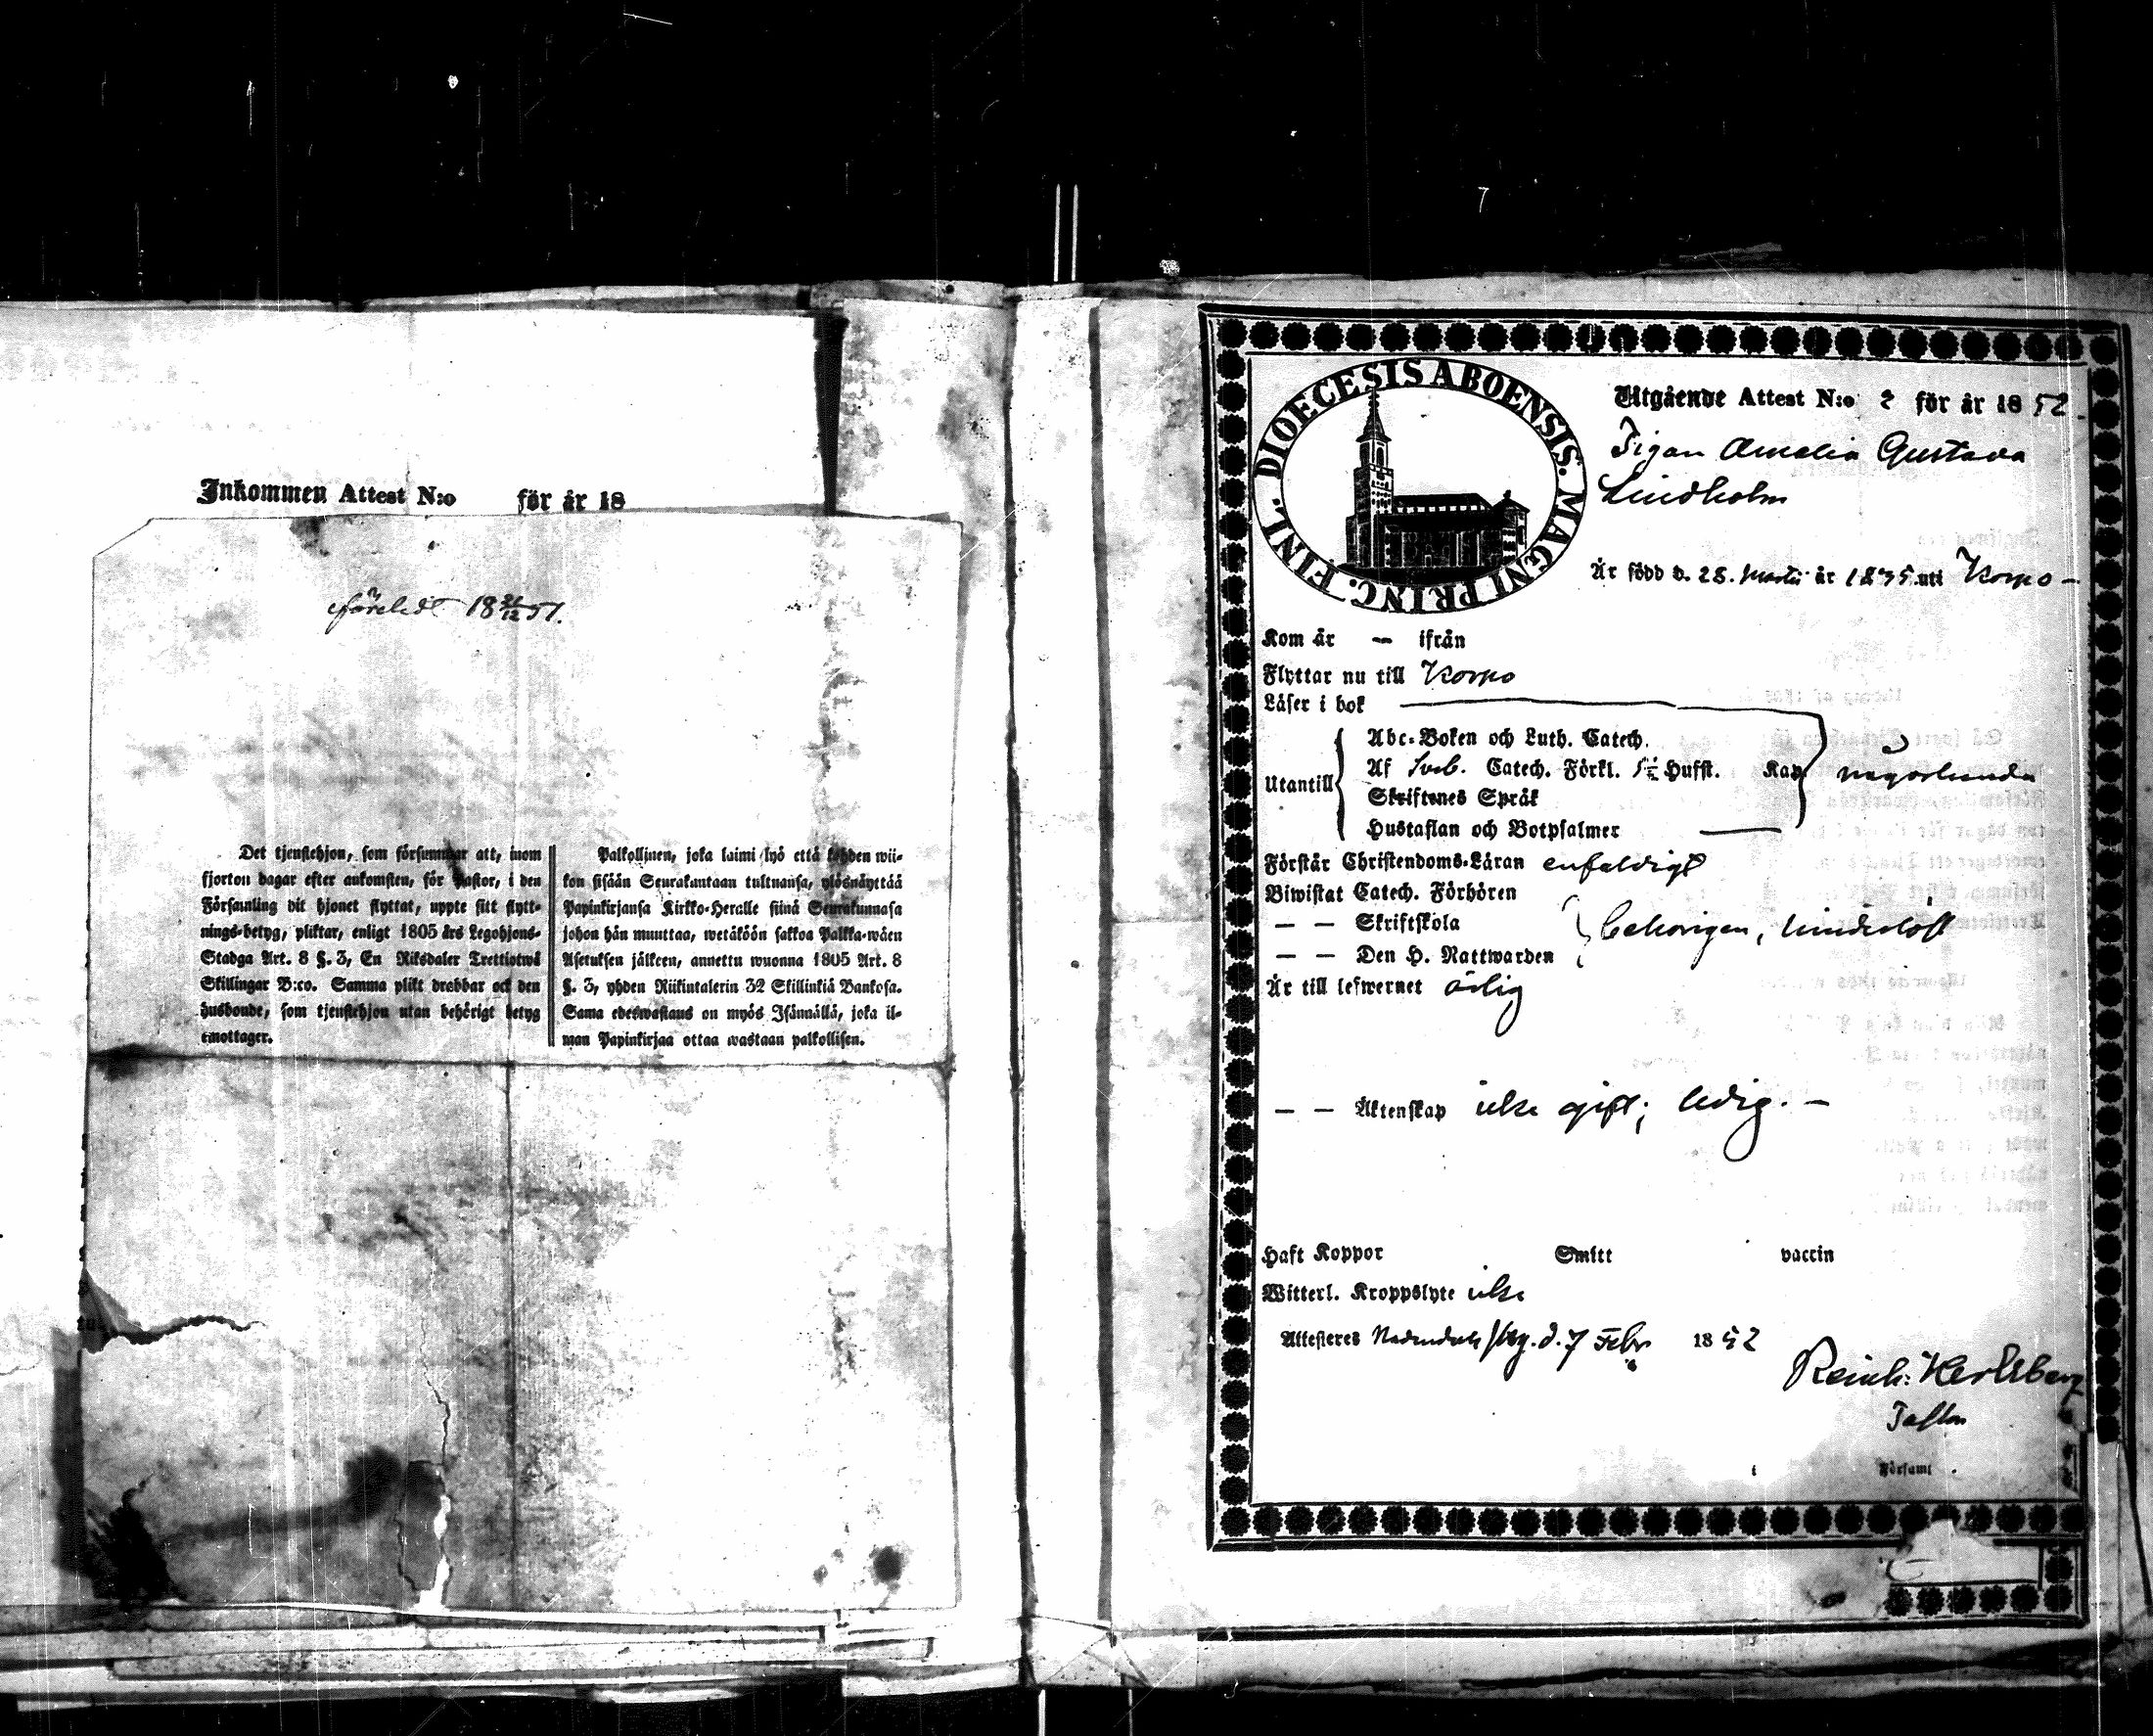 Inkommen Attest N:o för år 18
18 31/12 51.
Det tjenstehjon, som försummar att, inom
fjorton dagar efter ankomsten, för Pastor, i den
Församling dit hjonet flyttat, uppte sitt flytt-
nings-betyg, pliktar, enligt 1805 års Legohjons-
Stadga Art. 8 §. 3, En Riksdaler Trettiotwå
Skillingar B:co. Samma plikt drabbar ock den
husbonde, som tjenstehjon utan behörigt betyg
emottager.
Palkollinen, joka laimi lyö että kahden wii-
kon sisään Seurakuntaan tultuansa, ylösnäyttää
Papinkirjansa Kirkko-Herralle siinä Seurakunnasa
johon hän muuttaa, wetäköön sakkoa Palkka-wäen
Asetuksen jälkeen, annettu wuonna 1805 Art. 8
§. 3, yhden Riikintalerin 32 Skillinkiä Bankosa.
Sama edeswastaus on myös Isännällä, joka il-
man Papinkirjaa ottaa wastaan palkollisen.
DIOECESIS ABOENSIS. MAGNI PRINC. FINL.
Utgående Attest N:o 2 för år 1852.
Pigan Amalia Gustava
Lindholm
Är född d. 28. Martii år 1835 uti Korpo
Kom år — ifrån
Flyttar nu till Korpo
Läser i bok
Abc-Boken och Luth. Catech.
Utantill Af Sveb. Catech. Förkl. 5 Hufst. Kap någorlunda
Skriftenes Språk
Hustaflan och Botpsalmer
Förstår Christendoms-Läran enfaldigt
Biwistat Catech. Förhören
— — Skriftskola behörigen,
— — Den H. Nattwarden
Är till lefwernet ärlig
— — Äktenskap icke gift; ledig. —
Haft Koppor Smitt vaccin
Witterl. Kroppslyte icke
Attesteres Nådendal d. 7 Febr 1852
Reinh:
Pastor
i Församl.